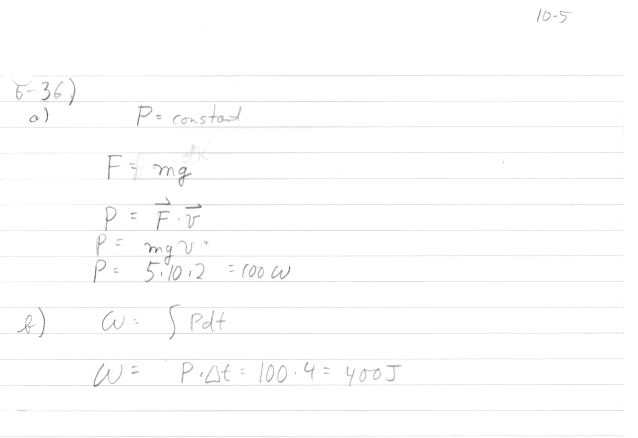 10-5
6-36)
a) P = constant
F = mg
P = F⃗ · v⃗
P = mgv
P = 5·10·2 = 100 W
b) W = ∫ Pdt
W = P·Δt = 100·4 = 400J